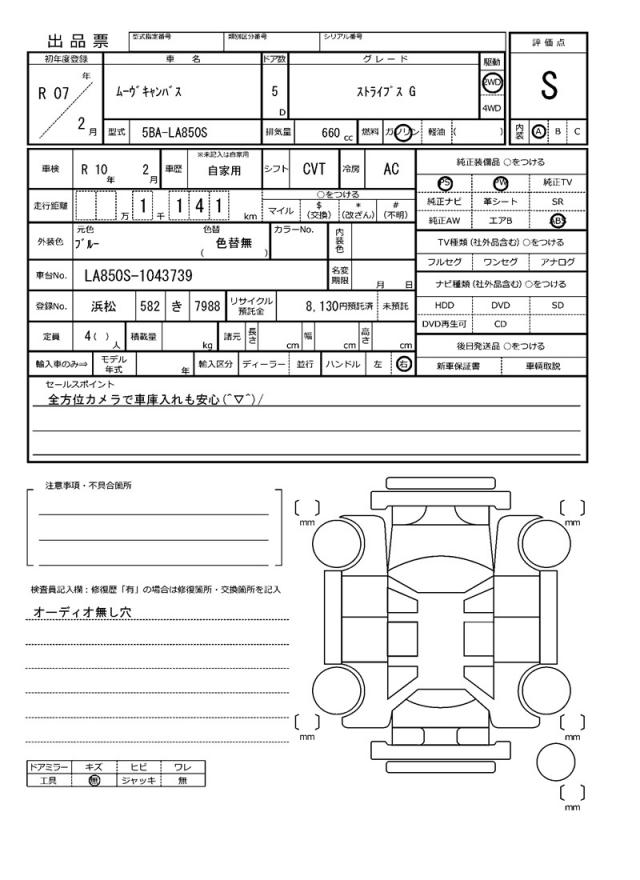 出品票 型式指定番号 類別区分番号 シリアル番号
評価点
S
初年度登録 車名 ドア数 グレード 駆動
R 07 年 2 月 ムーヴキャンバス 5 D ストライプス G 2WD 4WD
型式 5BA-LA850S 排気量 660 cc 燃料 ガソリン 軽油 ( ) 内装 A B C
車検 R 10 年 2 月 車歴 ※未記入は自家用 自家用 シフト CVT 冷房 AC
走行距離 万 1 千 1 4 1 km
○をつける
マイル $(交換) *(改ざん) #(不明)
外装色 元色 ブルー 色替 色替無 ( ) カラーNo. 内装色
車台No. LA850S-1043739 名変期限 月 日
登録No. 浜松 582 き 7988 リサイクル預託金 8,130円預託済 未預託
定員 4( ) 人 積載量 kg 諸元 長さ cm 幅 cm 高さ cm
輸入車のみ⇒ モデル年式 年 輸入区分 ディーラー 並行 ハンドル 左 右
純正装備品 ○をつける
PS PW 純正TV
純正ナビ 革シート SR
純正AW エアB ABS
TV種類 (社外品含む) ○をつける
フルセグ ワンセグ アナログ
ナビ種類 (社外品含む) ○をつける
HDD DVD SD
DVD再生可 CD
後日発送品 ○をつける
新車保証書 車輌取説
セールスポイント
全方位カメラで車庫入れも安心(^▽^)/
注意事項・不具合箇所
検査員記入欄：修復歴「有」の場合は修復箇所・交換箇所を記入
オーディオ無し穴
ドアミラー キズ ヒビ ワレ
工具 無 ジャッキ 無
mm
mm
mm
mm
mm